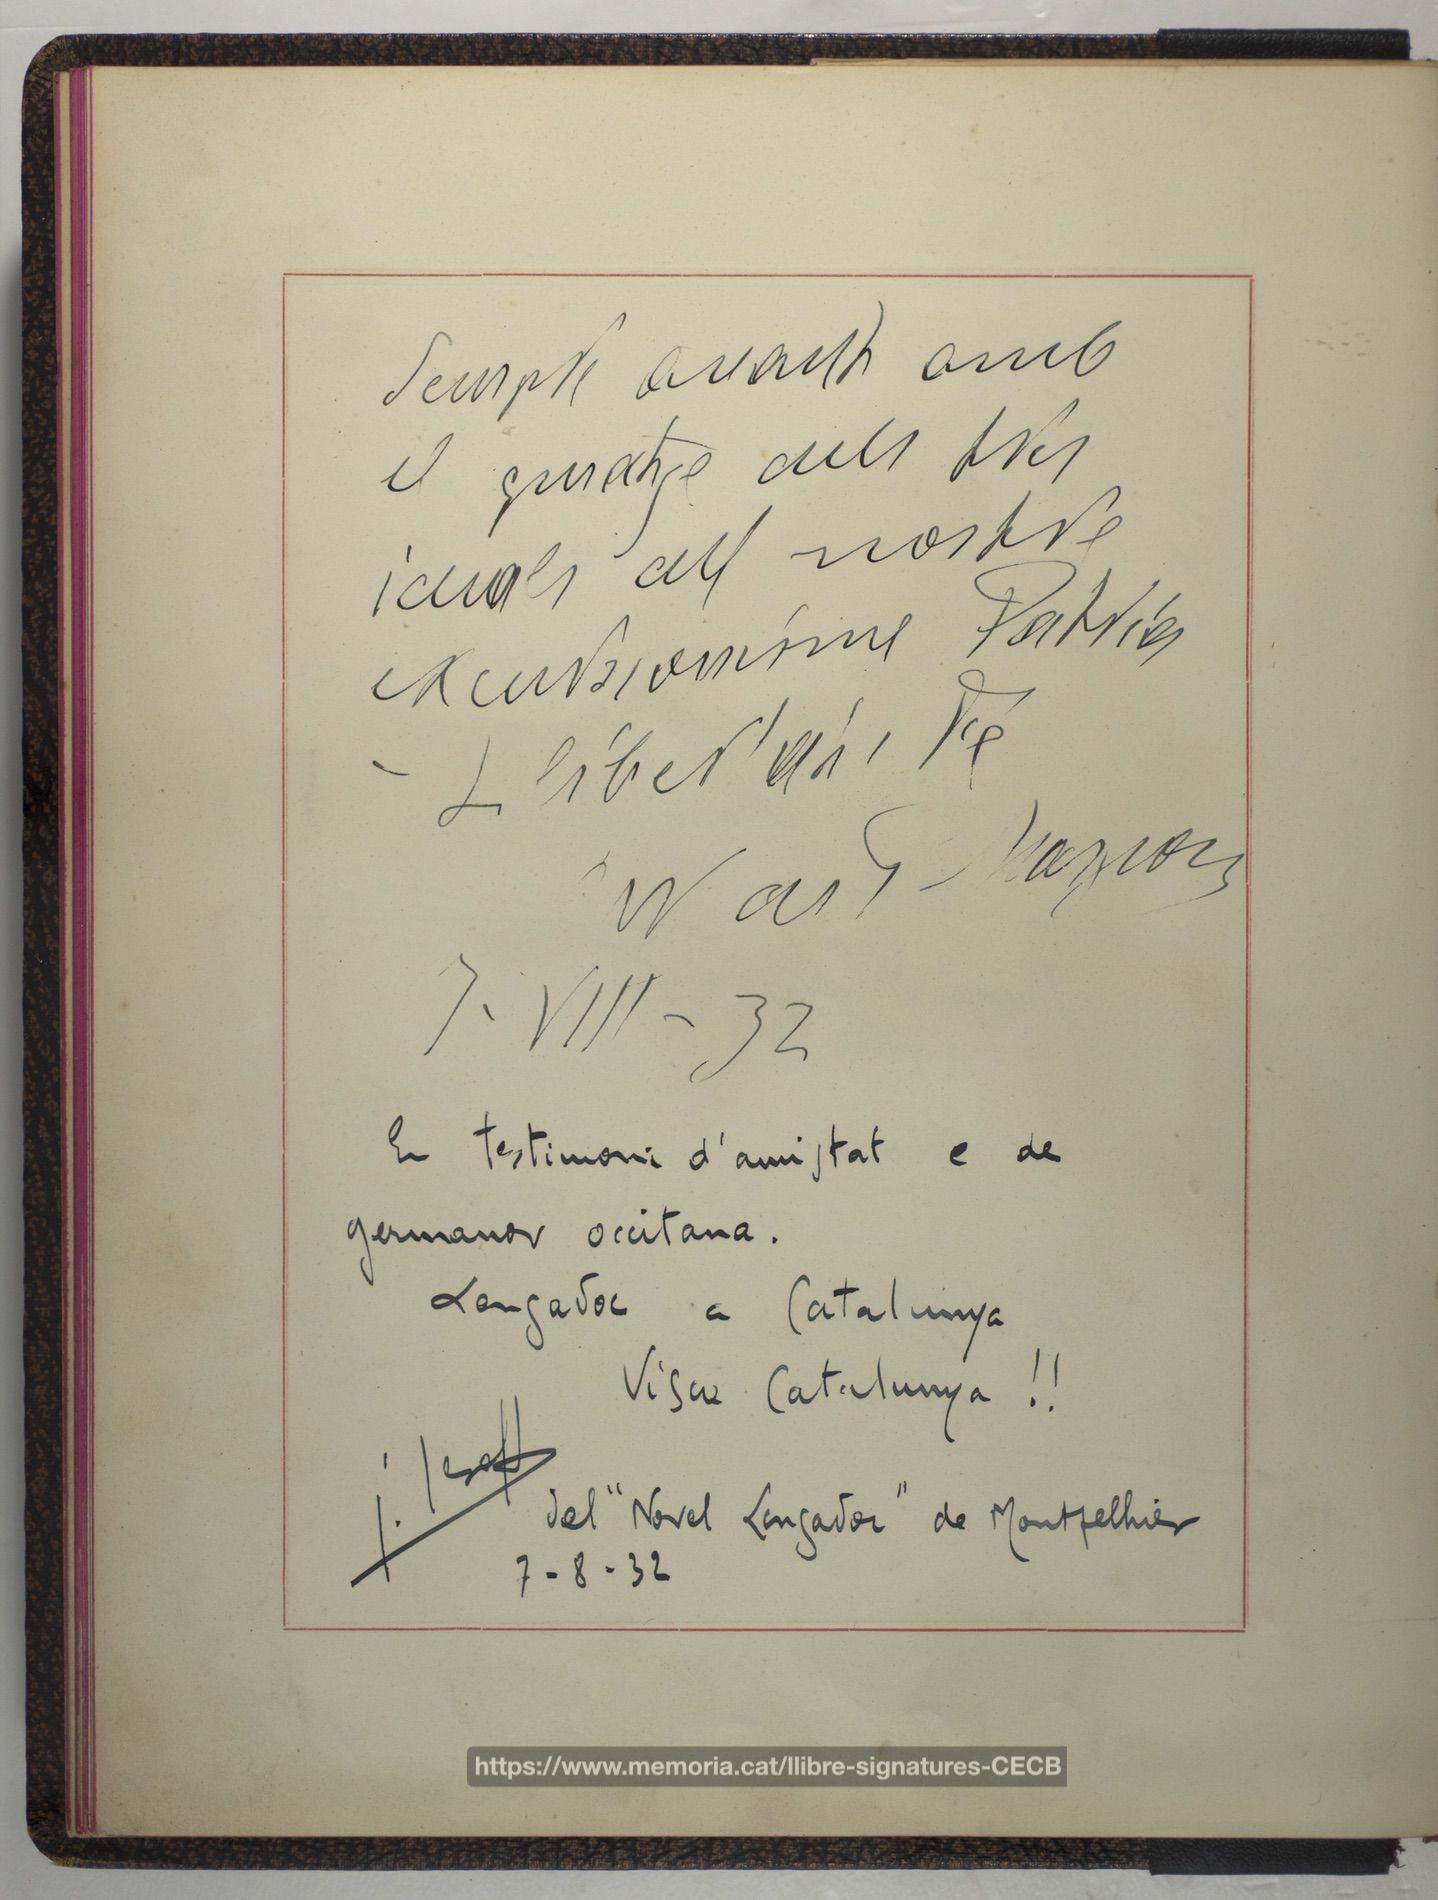 Sempre avant amb
el guiatge dels tres
ideals del nostre
excursionisme Patria
- Llibertat i Fe
7-VIII-32
En testimoni d'amistat e de
germanor occitana.
Lengadoc a Catalunya
Visca Catalunya !!
J.
del "Novel Lengadoc" de Montpelhier
7-8-32
https://www.memoria.cat/llibre-signatures-CECB